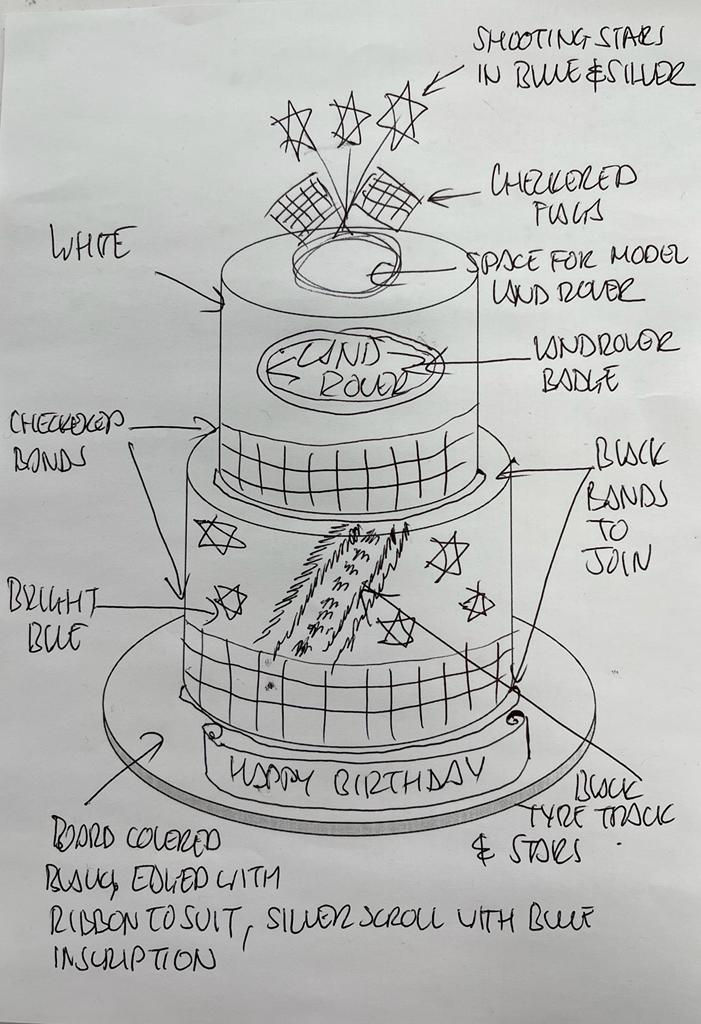 SHOOTING STARS
IN BLUE & SILVER
CHECKERED
FLAGS
WHITE
SPACE FOR MODEL
LAND ROVER
LAND
ROVER
LANDROVER
BADGE
CHECKERED
BANDS
BLACK
BANDS
TO
JOIN
BRIGHT
BLUE
HAPPY BIRTHDAY
BLACK
TYRE TRACK
& STARS
BOARD COVERED
BLACK, EDGED WITH
RIBBON TO SUIT, SILVER SCROLL WITH BLUE
INSCRIPTION